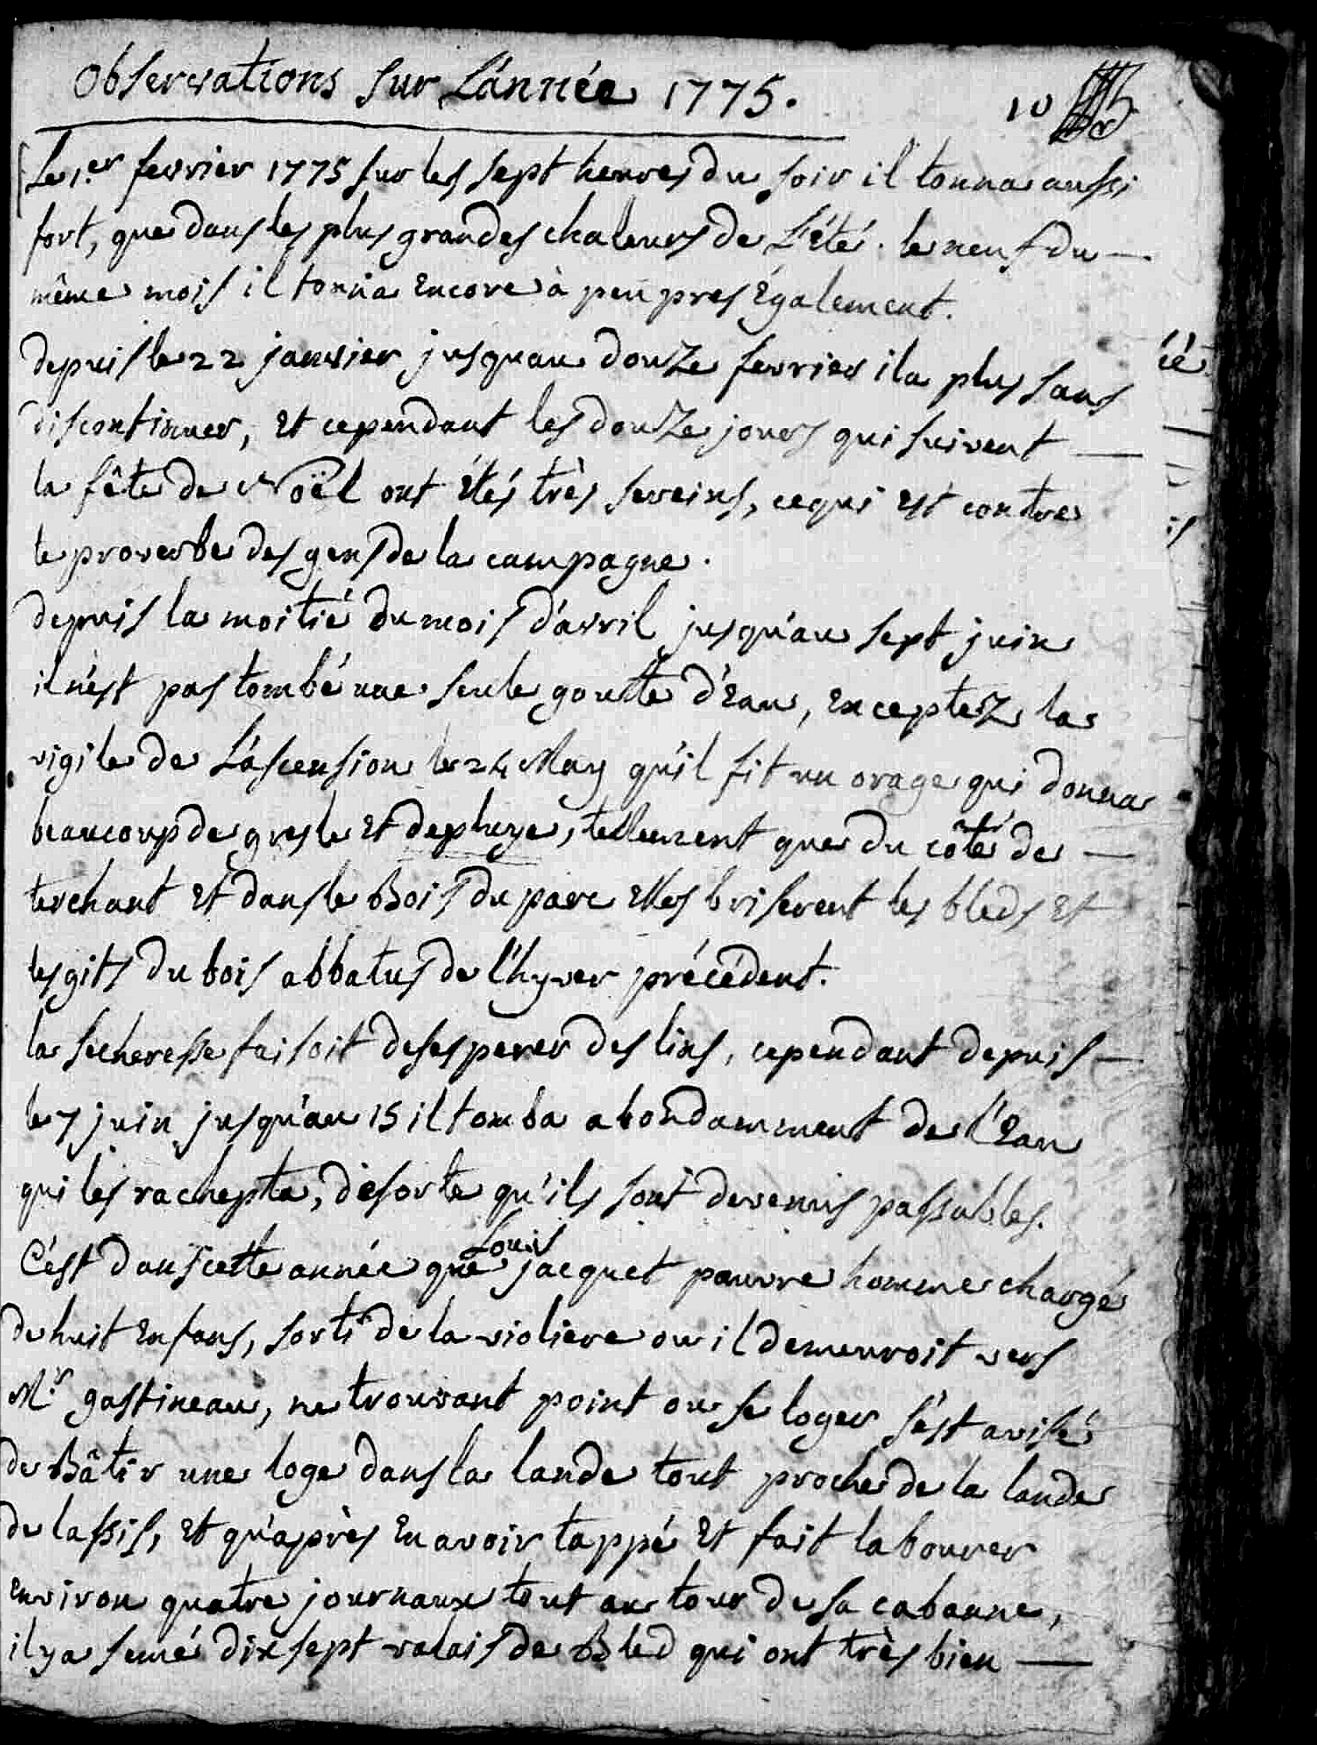 Observations sur L'année 1775.
10
Le 1.er fevrier 1775 sur les sept heures du soir il tonna aussi
fort, que dans les plus grandes chaleurs de L'été. le neuf du —
même mois il tonna encore à peu pres également.
depuis le 22 janvier jusquau douze fevrier il a plus sans
discontinuer, et cependant les douze jours qui suivent —
la fête de Noël ont étés très sereins, ce qui est contre
le proverbe des gens de la campagne.
depuis la moitié du mois d'avril jusqu'au sept juin
il n'est pas tombé une seule goutte d'eau, exceptez la
vigile de L'ascension le 24 May qu'il fit un orage qui donna
beaucoup de gresle et de pluye, tellement que du côté de —
terchant et dans le Bois du parc elles briserent les bleds et
les gits du bois abbatus de l'hyver précédent.
la secheresse faisoit desesperer des lins, cependant depuis —
le 7 juin jusqu'au 15 il tomba abondamment de l'eau
qui les rachepta, de sorte qu'ils sont devenus passables.
C'est dans cette année que Louis jacquet pauvre homme chargé
de huit enfans, sorti de la violiere ou il demeuroit vers
Mr. gastineau, ne trouvant point ou se loger s'est avisé
de Bâtir une loge dans la lande tout proche de la lande
de lassis, et qu'après en avoir tappé et fait labourer
environ quatre journaux tout au tour de sa cabanne,
il y a semé dix sept valais de Bled qui ont très bien —